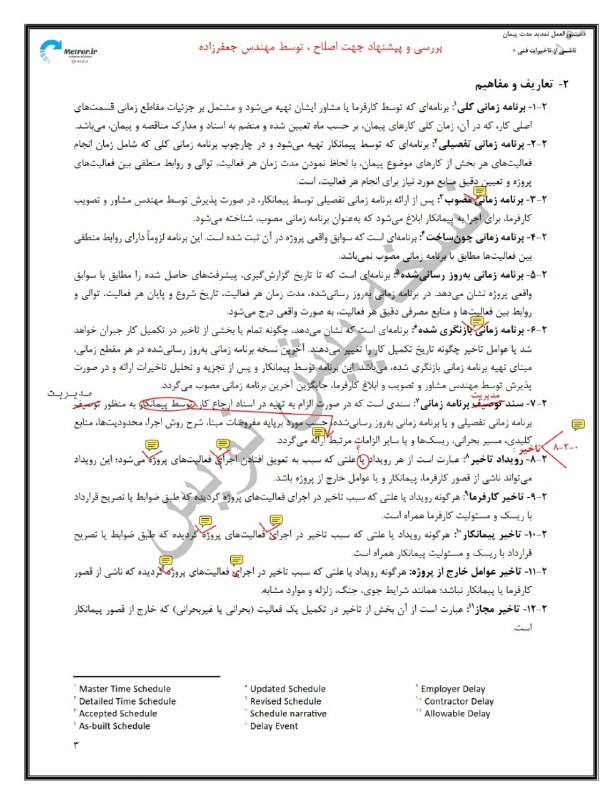 دستورالعمل تمدید مدت پیمان
ناشی از تاخیرات فنی *
بررسی و پیشنهاد جهت اصلاح ، توسط مهندس جعفرزاده
Metror.ir
۲- تعاریف و مفاهیم
۲-۱- برنامه زمانی کلی۱: برنامه‌ای که توسط کارفرما یا مشاور ایشان تهیه می‌شود و مشتمل بر جزئیات مقاطع زمانی قسمت‌های
اصلی کار، که در آن، زمان کلی کارهای پیمان، بر حسب ماه تعیین شده و منضم به اسناد و مدارک مناقصه و پیمان، می‌باشد.
۲-۲- برنامه زمانی تفصیلی۲: برنامه‌ای که توسط پیمانکار تهیه می‌شود و در چارچوب برنامه زمانی کلی که شامل زمان انجام
فعالیت‌های هر بخش از کارهای موضوع پیمان، با لحاظ نمودن مدت زمان هر فعالیت، توالی و روابط منطقی بین فعالیت‌های
پروژه و تعیین دقیق منابع مورد نیاز برای انجام هر فعالیت، است.
۲-۳- برنامه زمانی مصوب۳: پس از ارائه برنامه زمانی تفصیلی توسط پیمانکار، در صورت پذیرش توسط مهندس مشاور و تصویب
کارفرما، برای اجرا به پیمانکار ابلاغ می‌شود که به‌عنوان برنامه زمانی مصوب، شناخته می‌شود.
۲-۴- برنامه زمانی چون‌ساخت۴: برنامه‌ای است که سوابق واقعی پروژه در آن ثبت شده است. این برنامه لزوماً دارای روابط منطقی
بین فعالیت‌ها مطابق با برنامه زمانی مصوب نمی‌باشد.
۲-۵- برنامه زمانی به‌روز رسانی‌شده۵: برنامه‌ای است که تا تاریخ گزارش‌گیری، پیشرفت‌های حاصل شده را مطابق با سوابق
واقعی پروژه نشان می‌دهد. در برنامه زمانی به‌روز رسانی‌شده، مدت زمان هر فعالیت، تاریخ شروع و پایان هر فعالیت، توالی و
روابط بین فعالیت‌ها و منابع مصرفی دقیق هر فعالیت، به صورت واقعی درج می‌شود.
۲-۶- برنامه زمانی بازنگری شده۶: برنامه‌ای است که نشان می‌دهد، چگونه تمام یا بخشی از تاخیر در تکمیل کار جبران خواهد
شد یا عوامل تاخیر چگونه تاریخ تکمیل کار را تغییر می‌دهند. آخرین نسخه برنامه زمانی به‌روز رسانی‌شده در هر مقطع زمانی،
مبنای تهیه برنامه زمانی بازنگری شده، می‌باشد. این برنامه توسط پیمانکار و پس از تجزیه و تحلیل تاخیرات ارائه و در صورت
پذیرش توسط مهندس مشاور و تصویب و ابلاغ کارفرما، جایگزین آخرین برنامه زمانی مصوب می‌گردد.
مدیریت
مدیریت
۲-۷- سند توصیف برنامه زمانی۷: سندی است که در صورت الزام به تهیه در اسناد ارجاع کار، توسط پیمانکار به منظور توصیف
برنامه زمانی تفصیلی و یا برنامه زمانی به‌روز رسانی‌شده، حسب مورد برپایه مفروضات مبنا، شرح روش اجرا، محدودیت‌ها، منابع
کلیدی، مسیر بحرانی، ریسک‌ها و یا سایر الزامات مرتبط ارائه می‌گردد.
۲-۸-۰ تاخیر :
۲-۸- رویداد تاخیر۸: عبارت است از هر رویداد یا علتی که سبب به تعویق افتادن اجرای فعالیت‌های پروژه می‌شود؛ این رویداد
می‌تواند ناشی از قصور کارفرما، پیمانکار و یا عوامل خارج از پروژه باشد.
۲-۹- تاخیر کارفرما۹: هرگونه رویداد یا علتی که سبب تاخیر در اجرای فعالیت‌های پروژه گردیده که طبق ضوابط یا تصریح قرارداد
با ریسک و مسئولیت کارفرما همراه است.
۲-۱۰- تاخیر پیمانکار۱۰: هرگونه رویداد یا علتی که سبب تاخیر در اجرای فعالیت‌های پروژه گردیده که طبق ضوابط یا تصریح
قرارداد با ریسک و مسئولیت پیمانکار همراه است.
۲-۱۱- تاخیر عوامل خارج از پروژه: هرگونه رویداد یا علتی که سبب تاخیر در اجرای فعالیت‌های پروژه گردیده که ناشی از قصور
کارفرما یا پیمانکار نباشد؛ همانند شرایط جوی، جنگ، زلزله و موارد مشابه.
۲-۱۲- تاخیر مجاز۱۱: عبارت است از آن بخش از تاخیر در تکمیل یک فعالیت (بحرانی یا غیربحرانی) که خارج از قصور پیمانکار
است.
نسخه پیش نویس
۱ Master Time Schedule
۲ Detailed Time Schedule
۳ Accepted Schedule
۴ As-built Schedule
۵ Updated Schedule
۶ Revised Schedule
۷ Schedule narrative
۸ Delay Event
۹ Employer Delay
۱۰ Contractor Delay
۱۱ Allowable Delay
۳